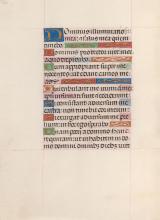 Dominus illuminatio
mea et salus mea quem
timebo
Dominus protector vite mee
a quo trepidabo
Dum appropiant super me
nocentes ut edant carnes me
as
Qui tribulant me inimici mei
ipsi infirmati sunt et
Si consistant adversum me
castra non timebit cor meum
Si exurgat adversum me
prelium in hoc ego sperabo
Unam petii a domino hanc
requiram ut inhabitem in do
mo domini omnibus diebus vite